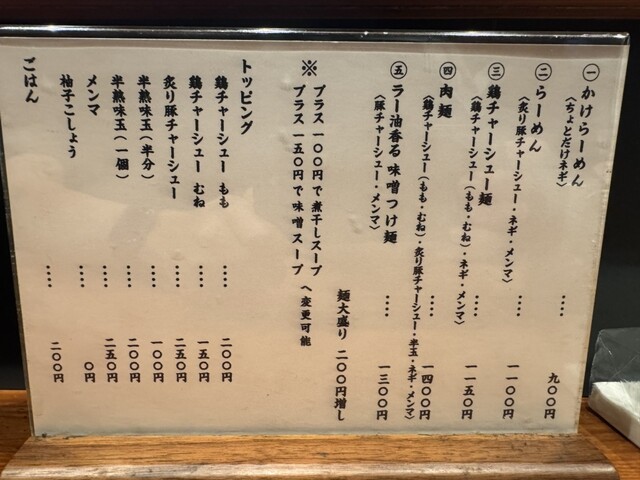 ㊀ かけらーめん …… 九〇〇円
〈ちょとだけネギ〉
㊁ らーめん …… 一一〇〇円
〈炙り豚チャーシュー・ネギ・メンマ〉
㊂ 鶏チャーシュー麺 …… 一一五〇円
〈鶏チャーシュー（もも・むね）・ネギ・メンマ〉
㊃ 肉麺 …… 一四〇〇円
〈鶏チャーシュー（もも・むね）・炙り豚チャーシュー・半玉・ネギ・メンマ〉
㊄ ラー油香る味噌つけ麺 …… 一三〇〇円
〈豚チャーシュー・メンマ〉
麺大盛り 二〇〇円増し
※ プラス一〇〇円で煮干しスープ
プラス一五〇円で味噌スープ へ変更可能
トッピング
鶏チャーシュー もも …… 二〇〇円
鶏チャーシュー むね …… 一五〇円
炙り豚チャーシュー …… 二五〇円
半熟味玉（半分） …… 一〇〇円
半熟味玉（一個） …… 二〇〇円
メンマ …… 二五〇円
柚子こしょう …… 〇円
ごはん …… 二〇〇円